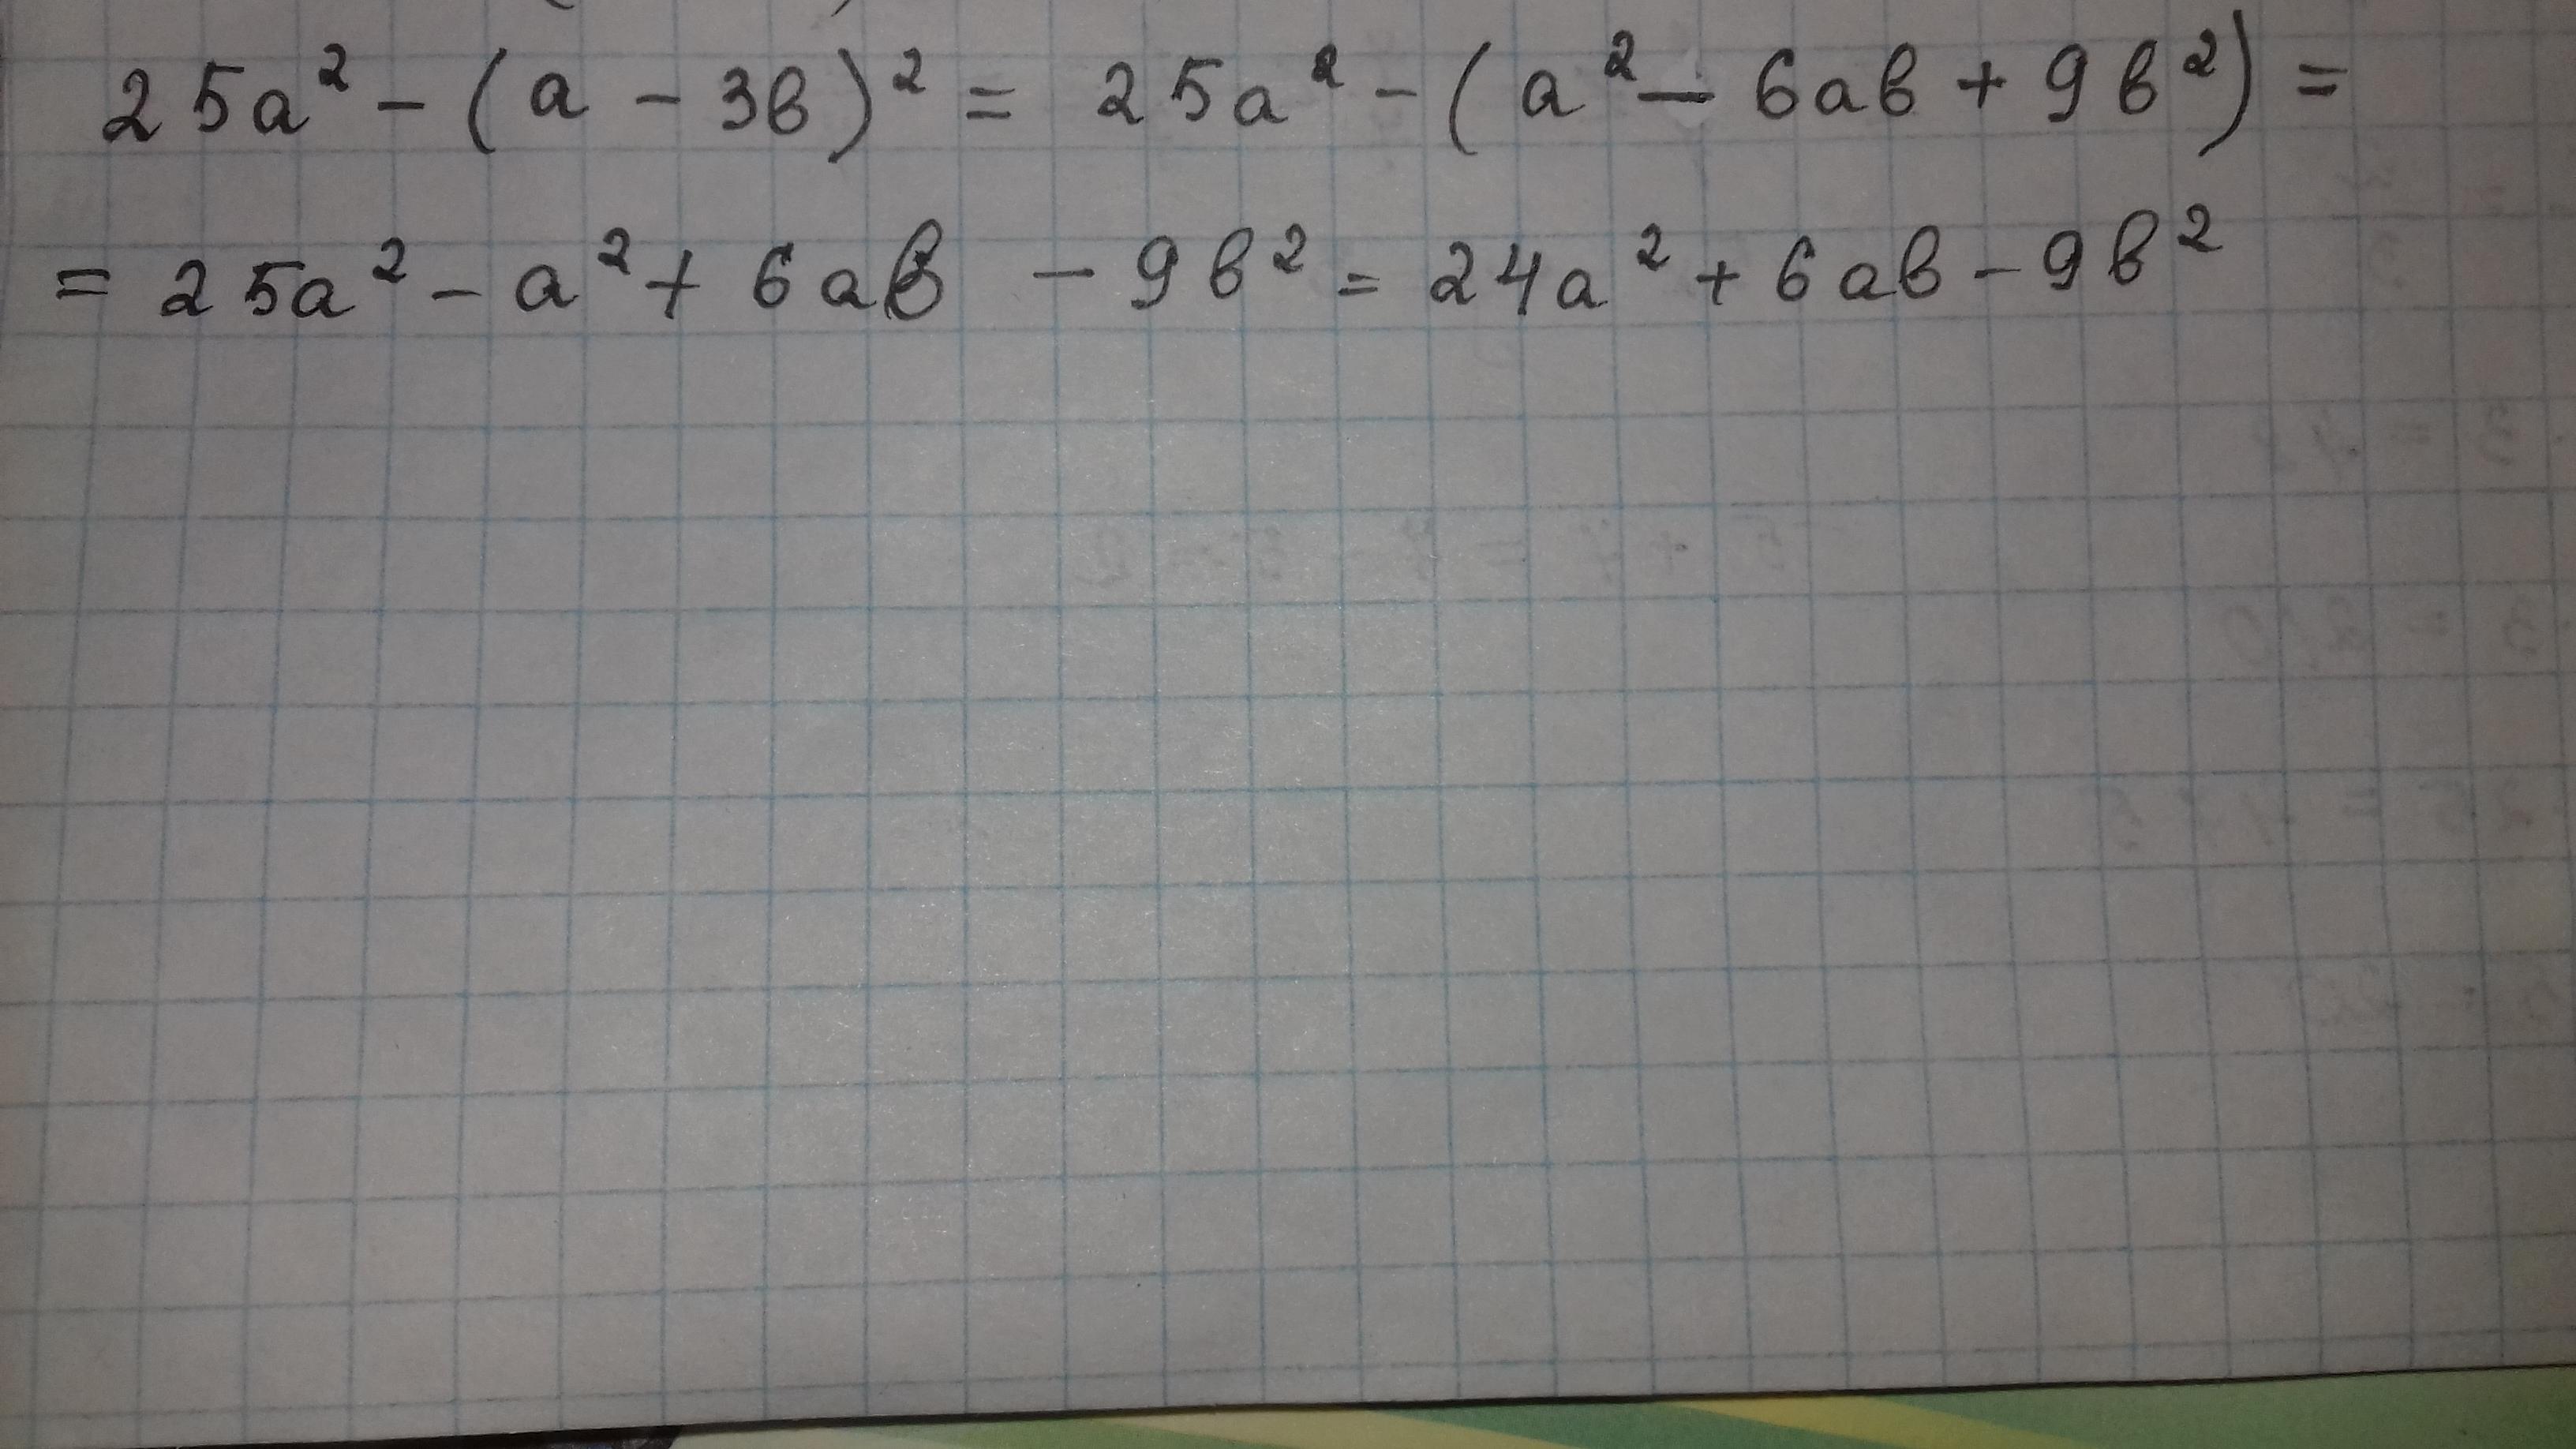 25a² - (a - 3b)² = 25a² - (a² - 6ab + 9b²) =
= 25a² - a² + 6ab - 9b² = 24a² + 6ab - 9b²